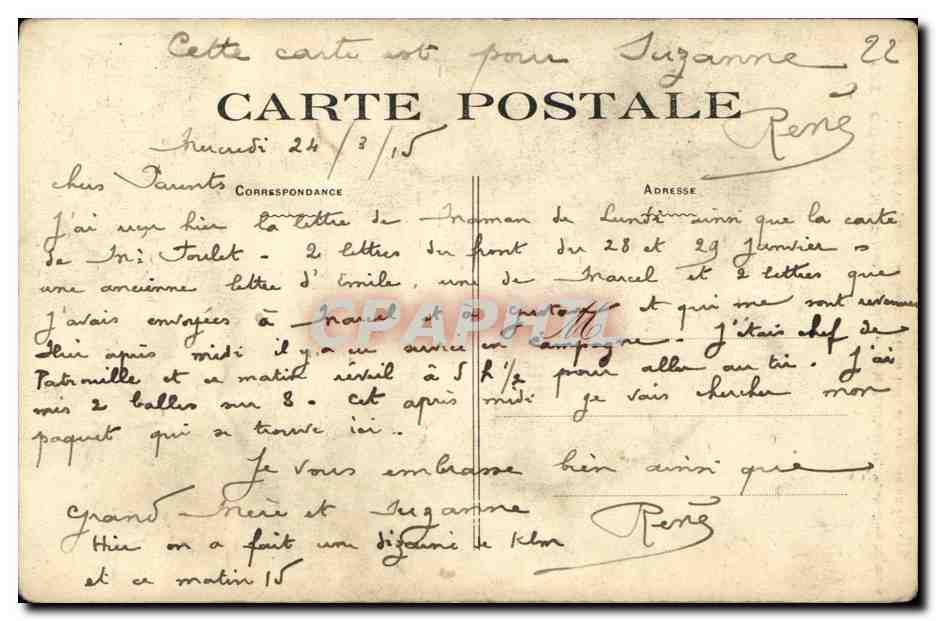 Cette carte est pour Suzanne 22
CARTE POSTALE
René
Mercredi 24/3/15
chers Parents
CORRESPONDANCE
ADRESSE
J'ai reçu hier la lettre de Maman de Lundi ainsi que la carte
de Mr Foulet - 2 lettres du front du 28 et 29 Janvier
une ancienne lettre d'Emile, une de Marcel et 2 lettres que
j'avais envoyées à Marcel et à et qui me sont revenues
CPARHIM
Hier après midi il y a eu service en campagne. J'étais chef de
Patrouille et ce matin réveil à 5 h 1/2 pour aller au tir. J'ai
mis 2 balles sur 8. Cet après midi je vais chercher mon
paquet qui se trouve ici..
Je vous embrasse bien ainsi que
Grand Mère et Suzanne
René
Hier on a fait une dizaine de Klm
et ce matin 15